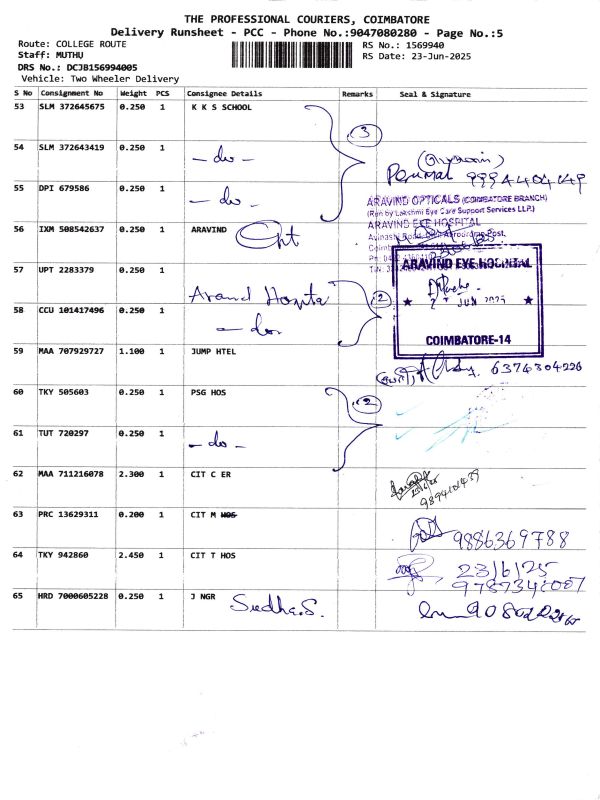 THE PROFESSIONAL COURIERS, COIMBATORE
Delivery Runsheet - PCC - Phone No.:9047080280 - Page No.:5
Route: COLLEGE ROUTE
Staff: MUTHU
DRS No.: DCJB156994005
Vehicle: Two Wheeler Delivery
RS No.: 1569940
RS Date: 23-Jun-2025
S No Consignment No Weight PCS Consignee Details Remarks Seal & Signature
53 SLM 372645675 0.250 1 K K S SCHOOL
3
54 SLM 372643419 0.250 1 - do -
Perumal 9994404149
55 DPI 679586 0.250 1 - do -
ARAVIND OPTICALS (COIMBATORE BRANCH)
(Run by Lakshmi Eye Care Support Services LLP.)
ARAVIND EYE HOSPITAL
56 IXM 508542637 0.250 1 ARAVIND
Avinashi Road, Civil Aerodrome Post,
57 UPT 2283379 0.250 1 Aravind Hospital
2
ARAVIND EYE HOSPITAL
JUN 2025
COIMBATORE-14
58 CCU 101417496 0.250 1 - do -
59 MAA 707929727 1.100 1 JUMP HTEL
6374304226
60 TKY 505603 0.250 1 PSG HOS
2
61 TUT 720297 0.250 1 - do -
62 MAA 711216078 2.300 1 CIT C ER
9894101439
63 PRC 13629311 0.200 1 CIT M HOS
9886369788
64 TKY 942860 2.450 1 CIT T HOS
23/6/25
9787341007
65 HRD 7000605228 0.250 1 J NGR Sudha.S.